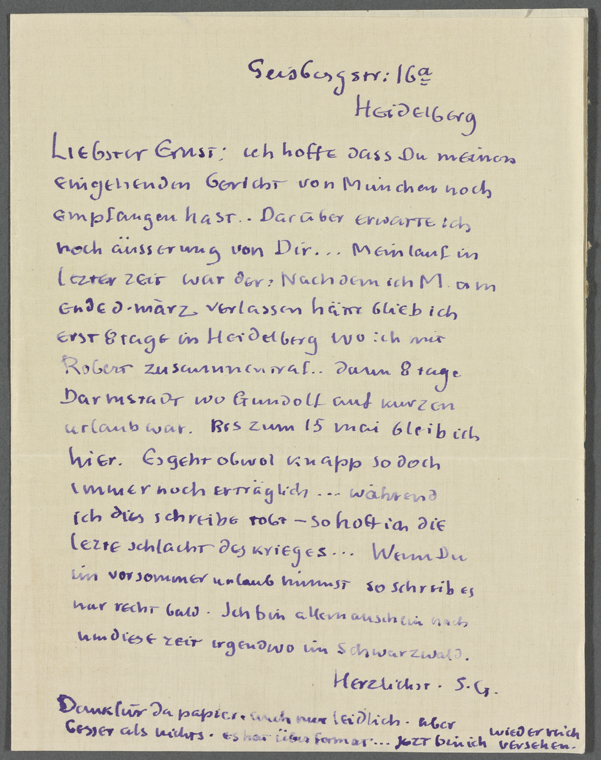 Geisbergstr: 16a
Heidelberg
Liebster Ernst: ich hoffe dass Du meinen
eingehenden bericht von München noch
empfangen hast.. Darüber erwarte ich
noch äusserung von Dir... Mein lauf in
lezter zeit war der: Nachdem ich M. am
ende d. märz verlassen hätte blieb ich
erst 8 tage in Heidelberg wo ich mit
Robert zusammentraf.. dann 8 tage
Darmstadt wo Gundolf auf kurzen
urlaub war. Bis zum 15 mai bleib ich
hier. Es geht obwol knapp so doch
immer noch erträglich... während
ich dies schreibe tobt – so hoff ich die
lezte schlacht des krieges... Wenn Du
im vorsommer urlaub nimmst so schreib es
nur recht bald. Ich bin allem anschein nach
um diese zeit irgendwo im Schwarzwald.
Herzlichst. S.G.
Dank für da papier. auch nur leidlich. aber
besser als nichts. es hat über format... jezt bin ich wieder reich
versehen.